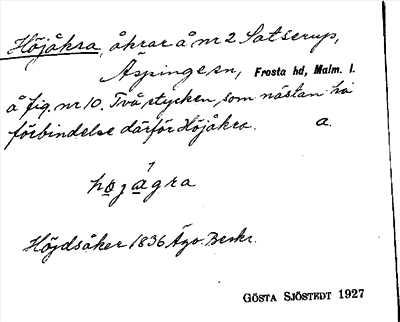 Höjåkra, åkrar å nr 2 Satserup,
Äspinge sn, Frosta hd, Malm. l.
å fig. nr 10. Två stycken, som nästan ha
förbindelse därför Höjåkra. a.
hǫjagra
Höjdsåker 1836 Ägo. Beskr.
GÖSTA SJÖSTEDT 1927